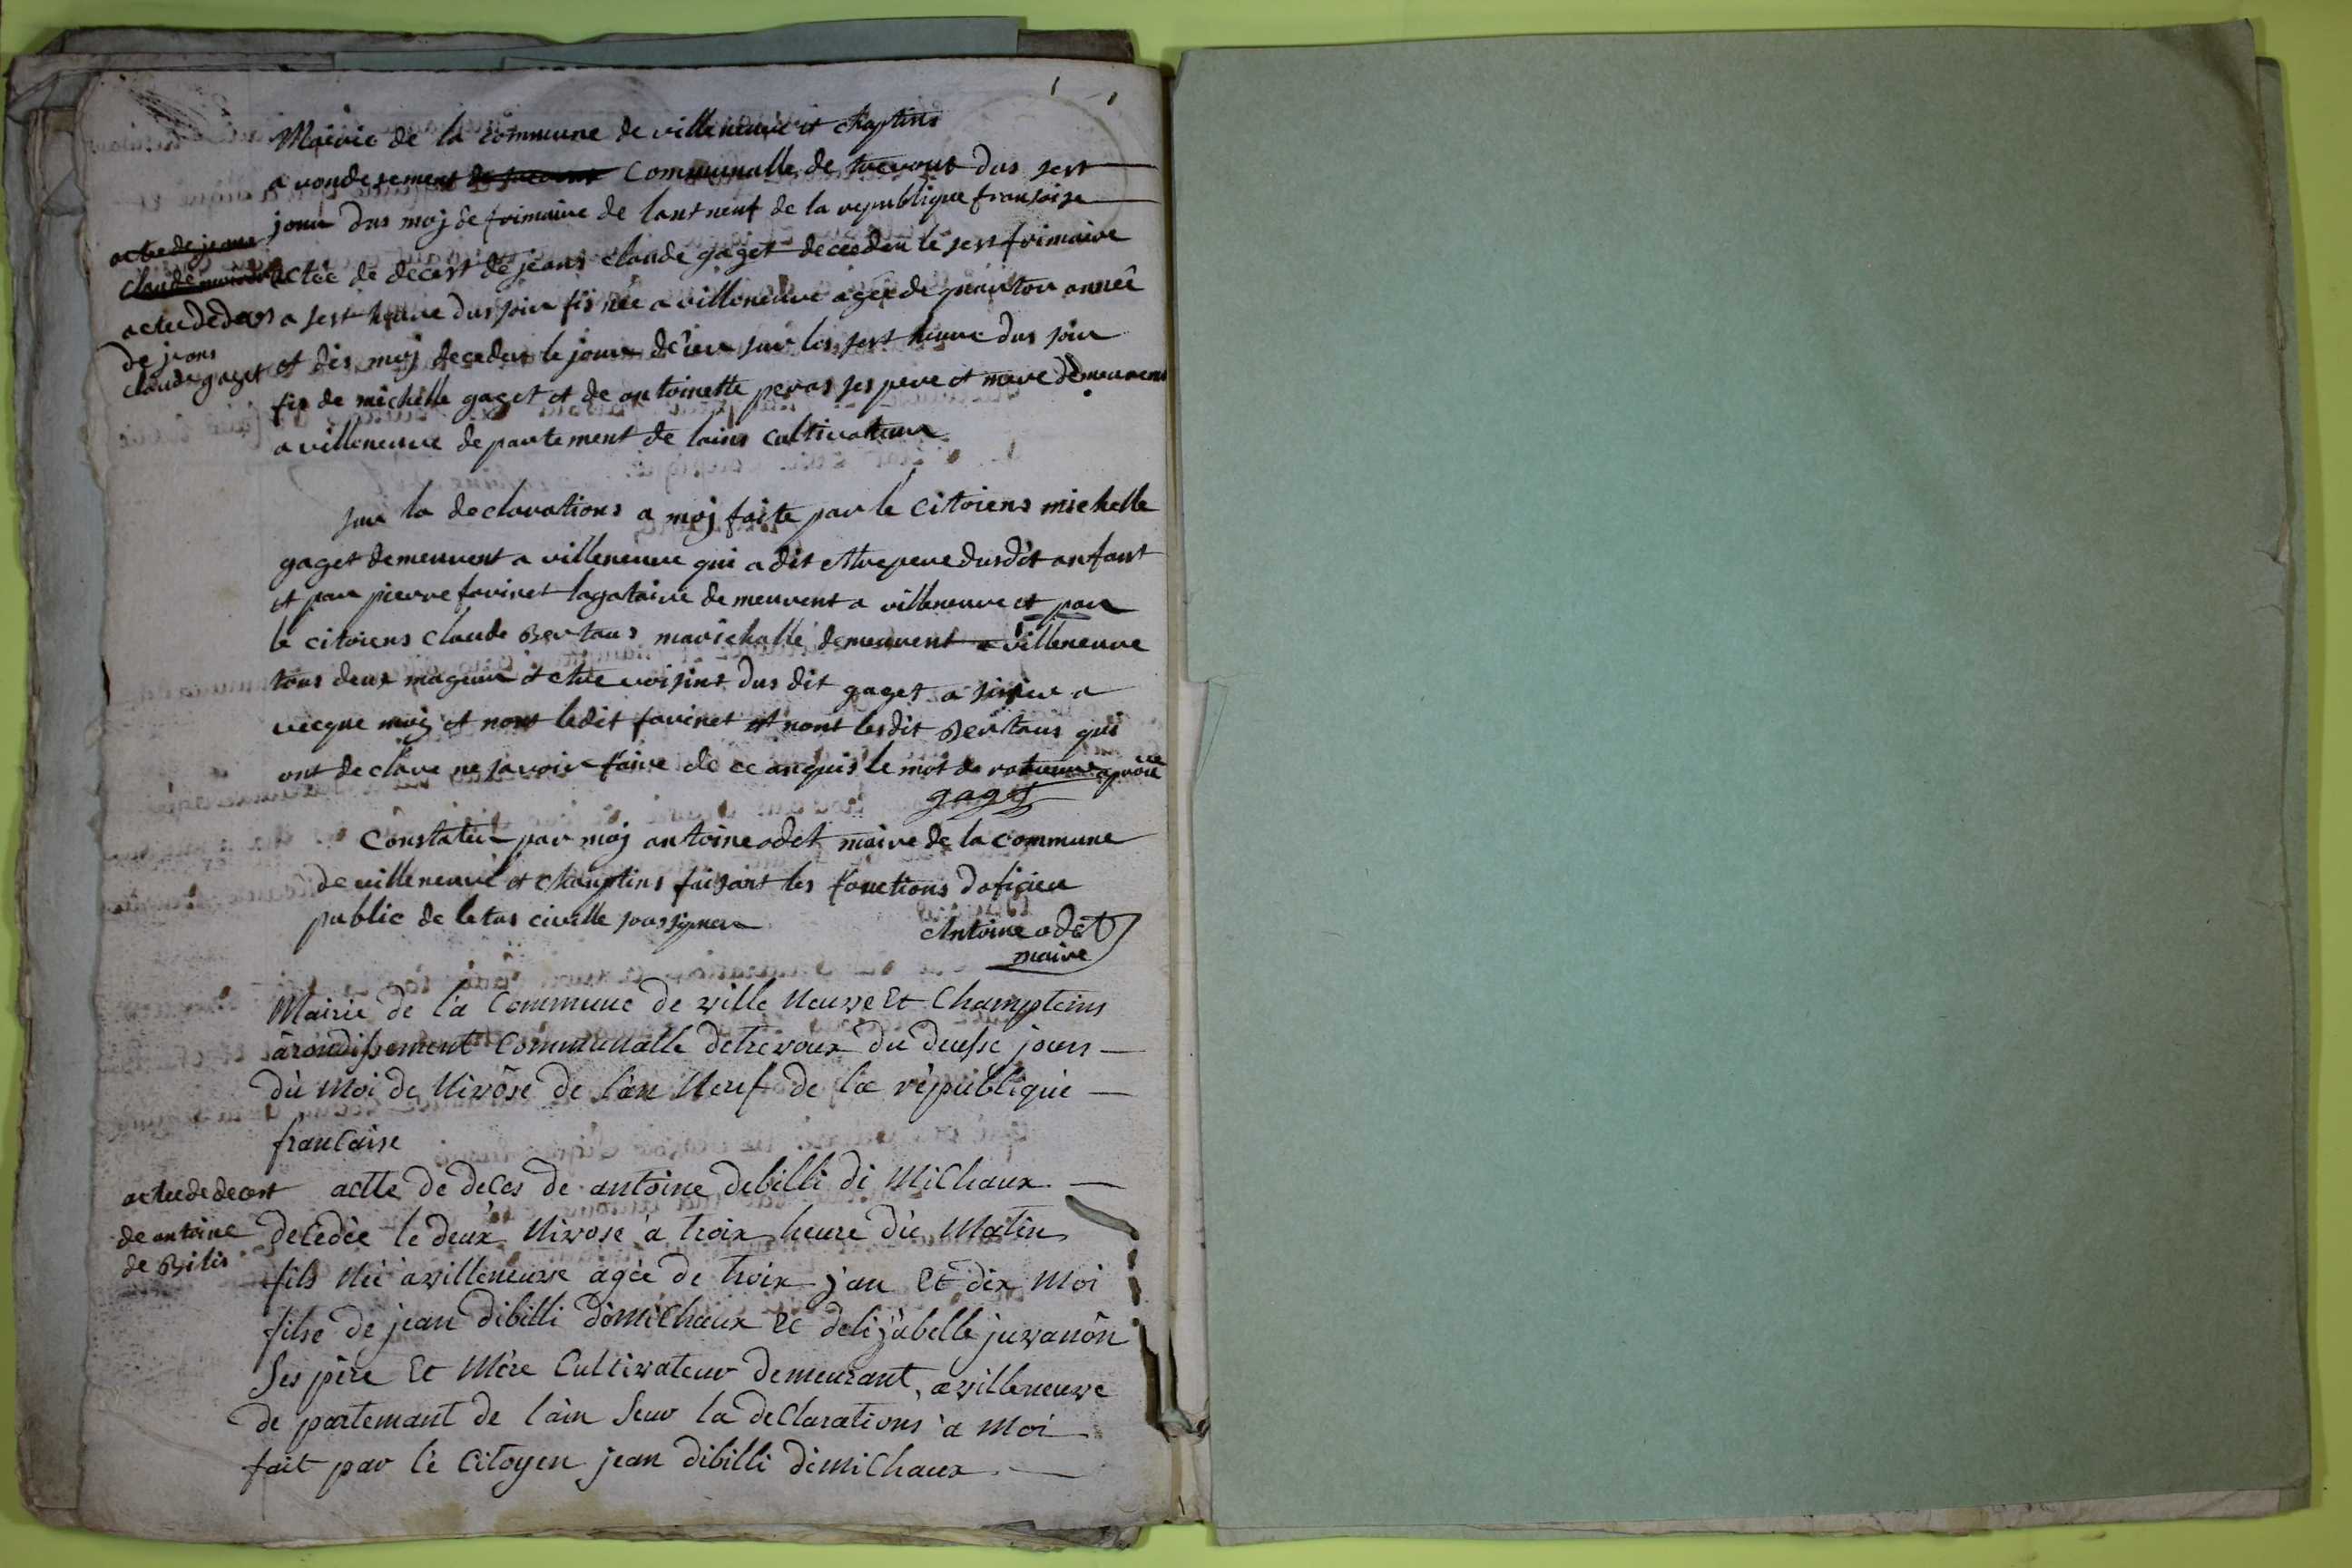 Mairie de la commune de villeneuve et chaptins
a rondesement communalle de trevout dus sest
jour dus moj de frimaire de lant neuf de la republique fransoise
actee de decest de jeans claude gaget decedeu le sest frimaire
a sest heure dus soir fis nee a villeneuve agee de quaitor anneê
et dis moj decedeu le jour d'ier sur les sest heure dus soir
fis de michelle gaget et de antoinette peras ses pere et mere demeurens
a villeneuve departement de lains cultivateur
acte de jeans
claude
actee de deces
de jeans
claude gaget
sur la declarations a moj faite par le citoiens michelle
gaget demeurent a villeneuve qui a dit ettre pere dusdit anfant
et par pierre favinet lagataire demeurent a villeneuve et par
le citoiens claude Bertaus marichalle demeurent a villeneuve
tous deux mageur et etre voisint dus dit gaget a sinier a
vecque moij et nont ledit favinet et nont lesdit Bertaus qui
ont declare ne savoir faire de ce anquis le mot de rature aprouve
gaget
Constateir par moj antoine odet maire de la commune
de villeneuve et chauptins faisant les fonctions doficier
public de letas civille soussigner
Antoine odet
maire
Mairie de la Commune de ville Neuve Et Champteins
àrondissement Communalle detrevoux du deusse jours
dù Moi de Nivôse de l'an Neuf de la rèpublique
francaise
actee de decest
de antoine
de Bilis
actte de deces de antoine debilli di Michaux
decedée le deux Nivose à troix heure dù Matin
fils Néé a villeneuve agée de troix jan Et dix Moi
filse de jean dibilli dimichaux Et delizabelle juvanôn
Ses père Et Mère Cultivateur demeurant, a villeneuve
de partemant de l'ain Seur la declarations à Moi
fait par le Citoyen jean dibilli dimichaux